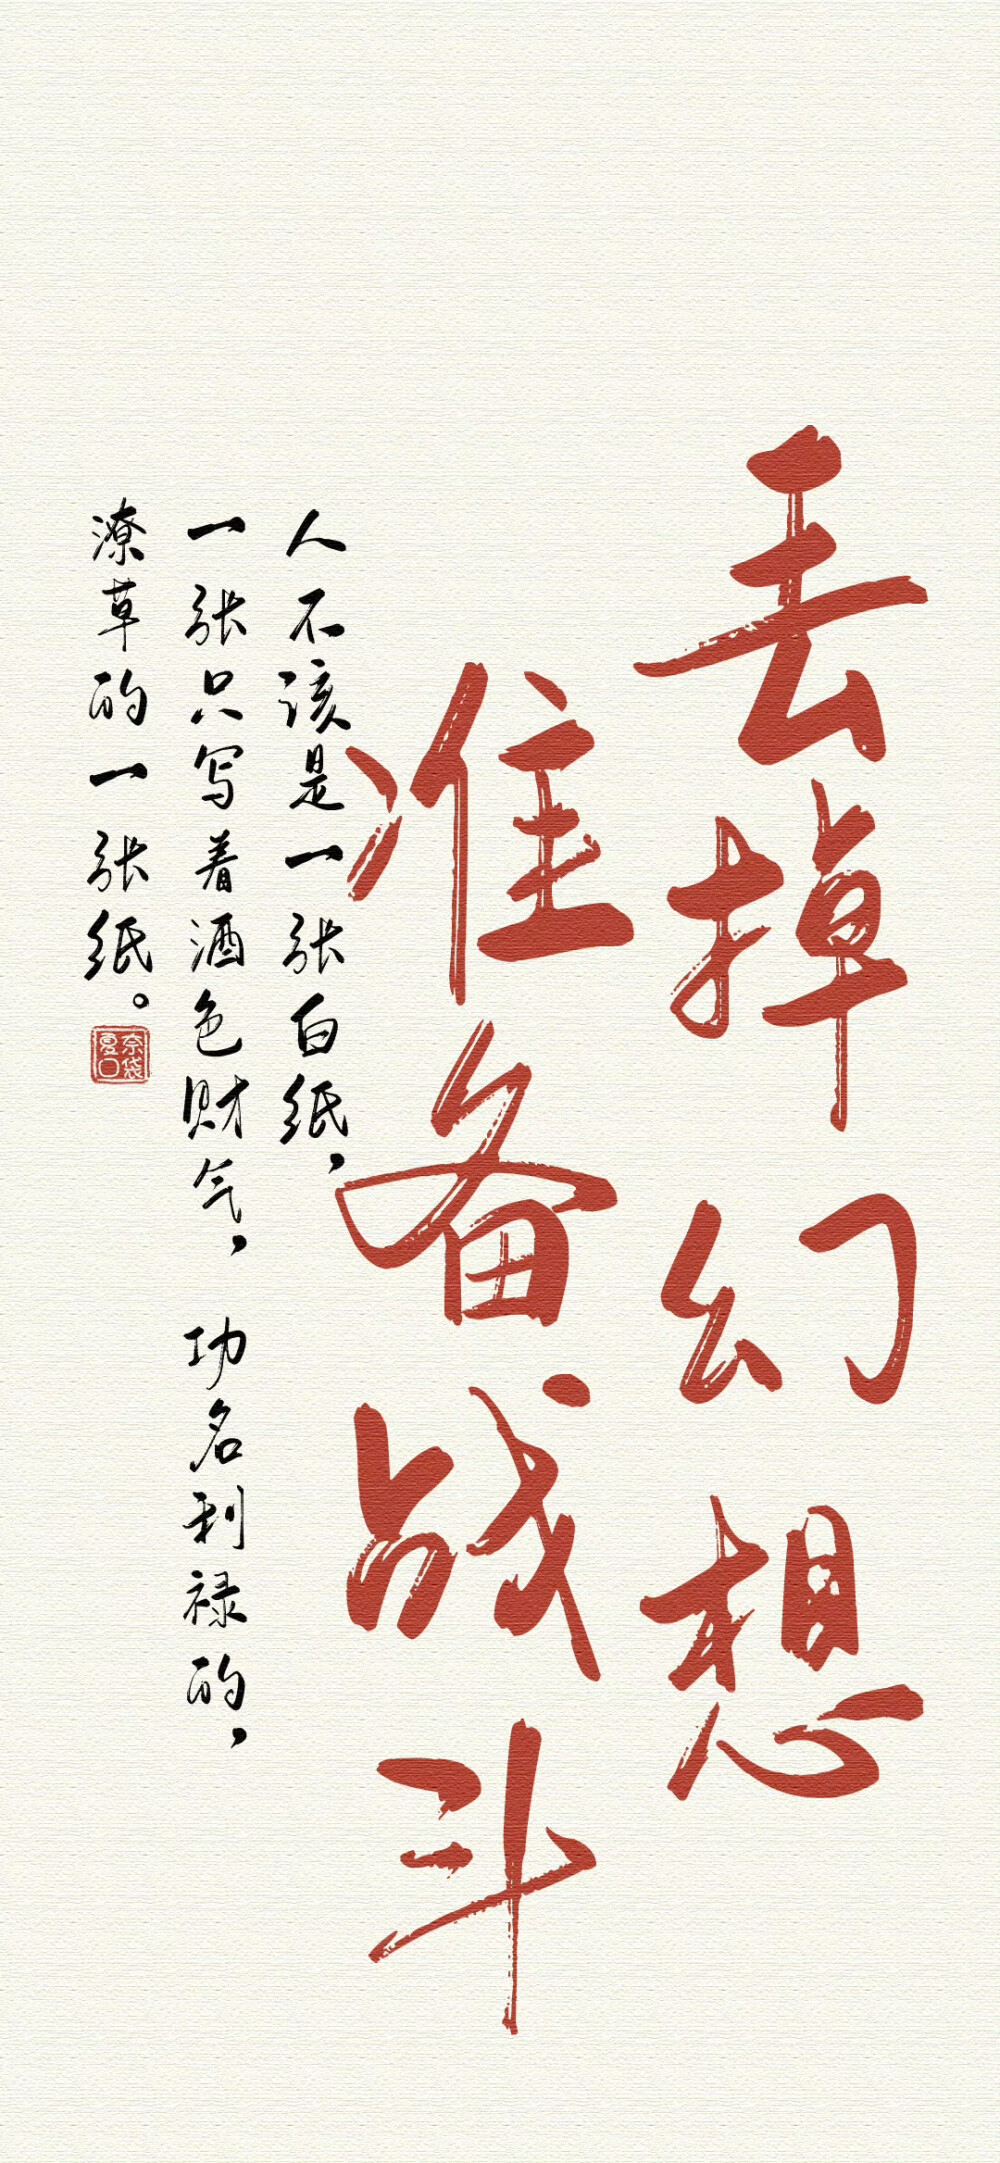 丢掉幻想
准备战斗
人不该是一张白纸，
一张只写着酒色财气，功名利禄的，
潦草的一张纸。
奈袋
夏口